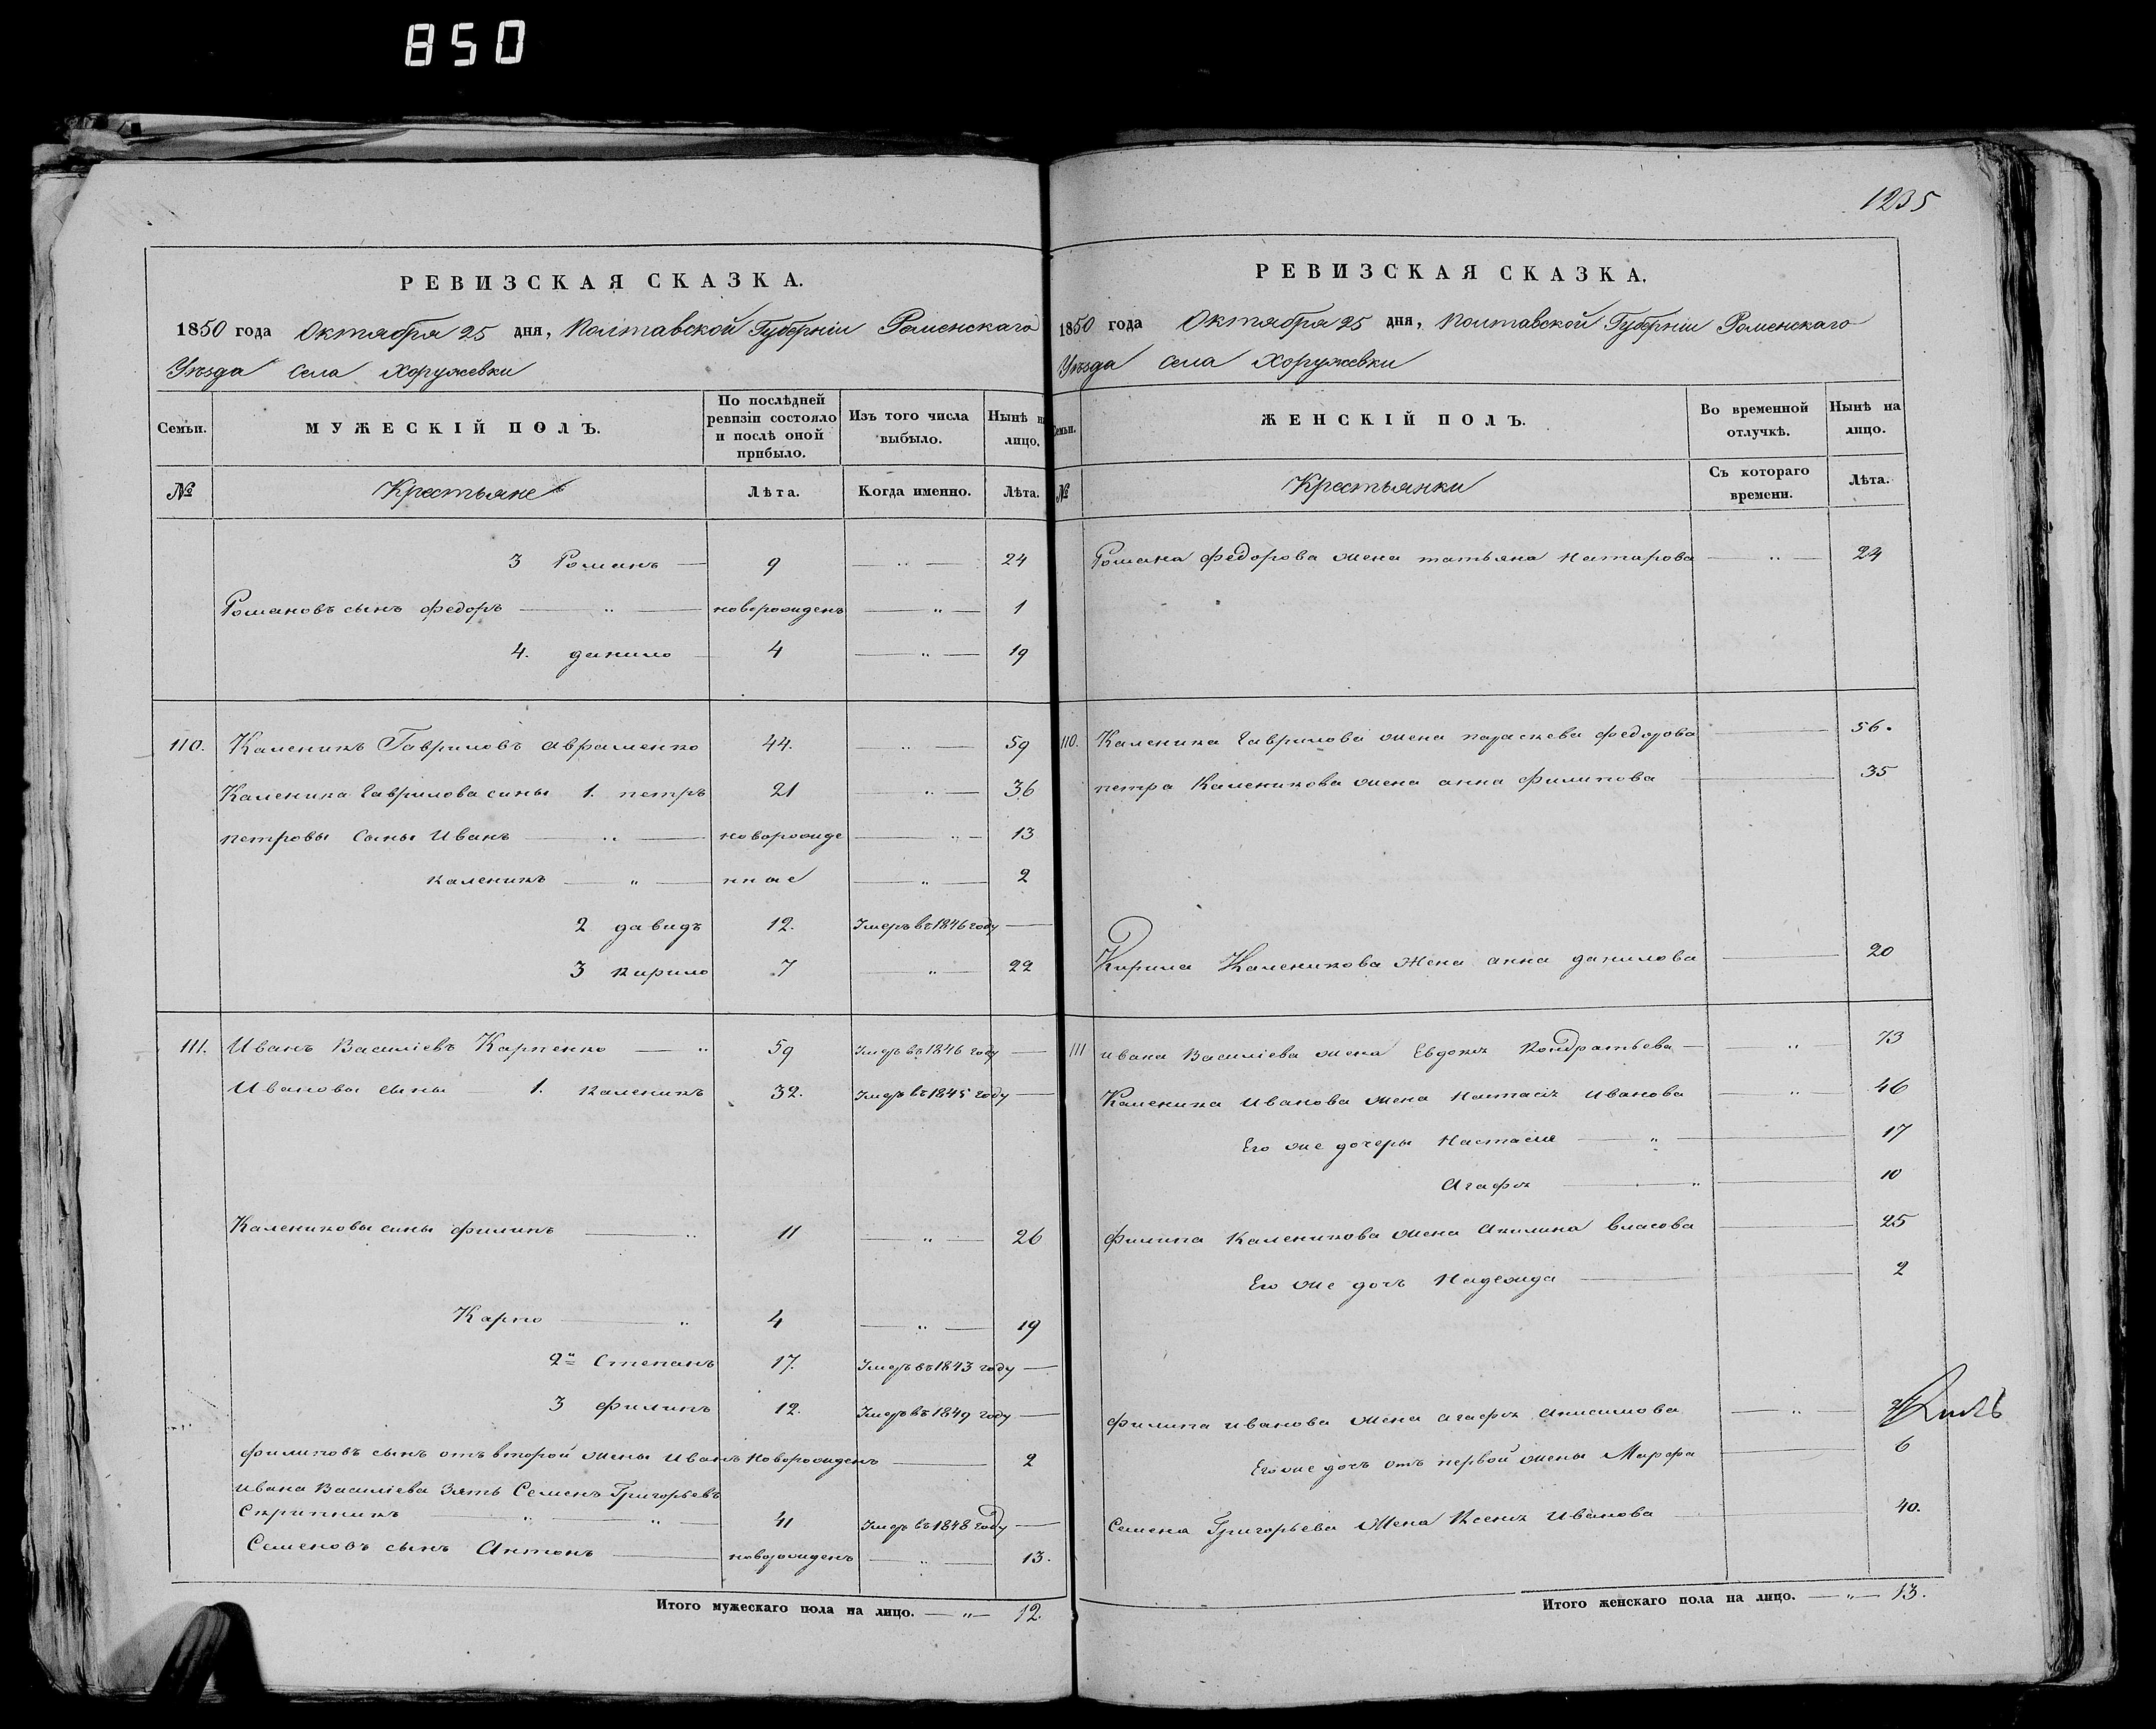 850
1235
РЕВИЗСКАЯ СКАЗКА.
1850 года Октября 25 дня, Полтавской Губерніи Роменскаго
Уѣзда Села Хоружевки
Семьи.
МУЖЕСКІЙ ПОЛЪ.
По послѣдней ревизіи состояло и послѣ оной прибыло.
Изъ того числа выбыло.
Нынѣ на лицо.
№ Крестьяне Лѣта. Когда именно. Лѣта.
3 Романъ — 9 — „ — 24
Романовъ сынъ Федоръ — „ — новорожденъ — „ — 1
4. данило — 4 — „ — 19
110. Каленикъ Гавриловъ Авраменко 44. „ — 59
Каленика Гаврилова сины 1. петръ 21 — „ — 36
петровы Сыны Иванъ — „ — новорожде — „ — 13
Каленикъ — „ — нные — „ — 2
2 давидъ 12. Умеръ въ 1846 году —
3 кирило 7 „ — 22
111. Иванъ Василіевъ Карпенко — „ 59 Умеръ въ 1846 году —
Ивановы сыны — 1. Каленикъ 32. Умеръ въ 1845 году —
Калениковы сины филипъ — „ 11 — „ — 26
Карпо — „ 4 — „ — 19
2й Степанъ 17. Умеръ въ 1843 году —
3 филипъ 12. Умеръ въ 1849 году —
филиповъ сынъ отъ второй жены Иванъ Новорожденъ — 2
Ивана Василіева Зять Семенъ Григорьевъ
Скрипникъ „ — „ — 41 Умеръ въ 1848 году —
Семеновъ сынъ Антонъ — новорожденъ — „ — 13.
Итого мужескаго пола на лицо. — „ — 12.
РЕВИЗСКАЯ СКАЗКА.
1850 года Октября 25 дня, Полтавской Губерніи Роменскаго
Уѣзда Села Хоружевки
Семьи.
ЖЕНСКІЙ ПОЛЪ.
Во временной отлучкѣ.
Нынѣ на лицо.
№ Крестьянки Съ котораго времени. Лѣта.
Романа Федорова жена татьяна Натарова — „ — 24
110. Каленика Гаврилова жена параскева федорова — 56.
петра Каленикова жена анна Филипова — 35
Кирила Каленикова Жена анна данилова — 20
111 ивана Василіева жена Евдокія Кондратьева — „ — 73
Каленика Иванова жена Настасія Иванова — „ — 46
Его же дочеры Настасия — „ — 17
Агафія — „ — 10
Филипа Каленикова жена Акилина Власова — 25
Его же дочь Надежда — 2
филипа иванова жена агафія Анисимова — „ —
Его же дочь отъ первой жены Марфа — 6
Семена Григорьева Жена Ксенія Иванова 40.
Итого женскаго пола на лицо. — „ — 13.